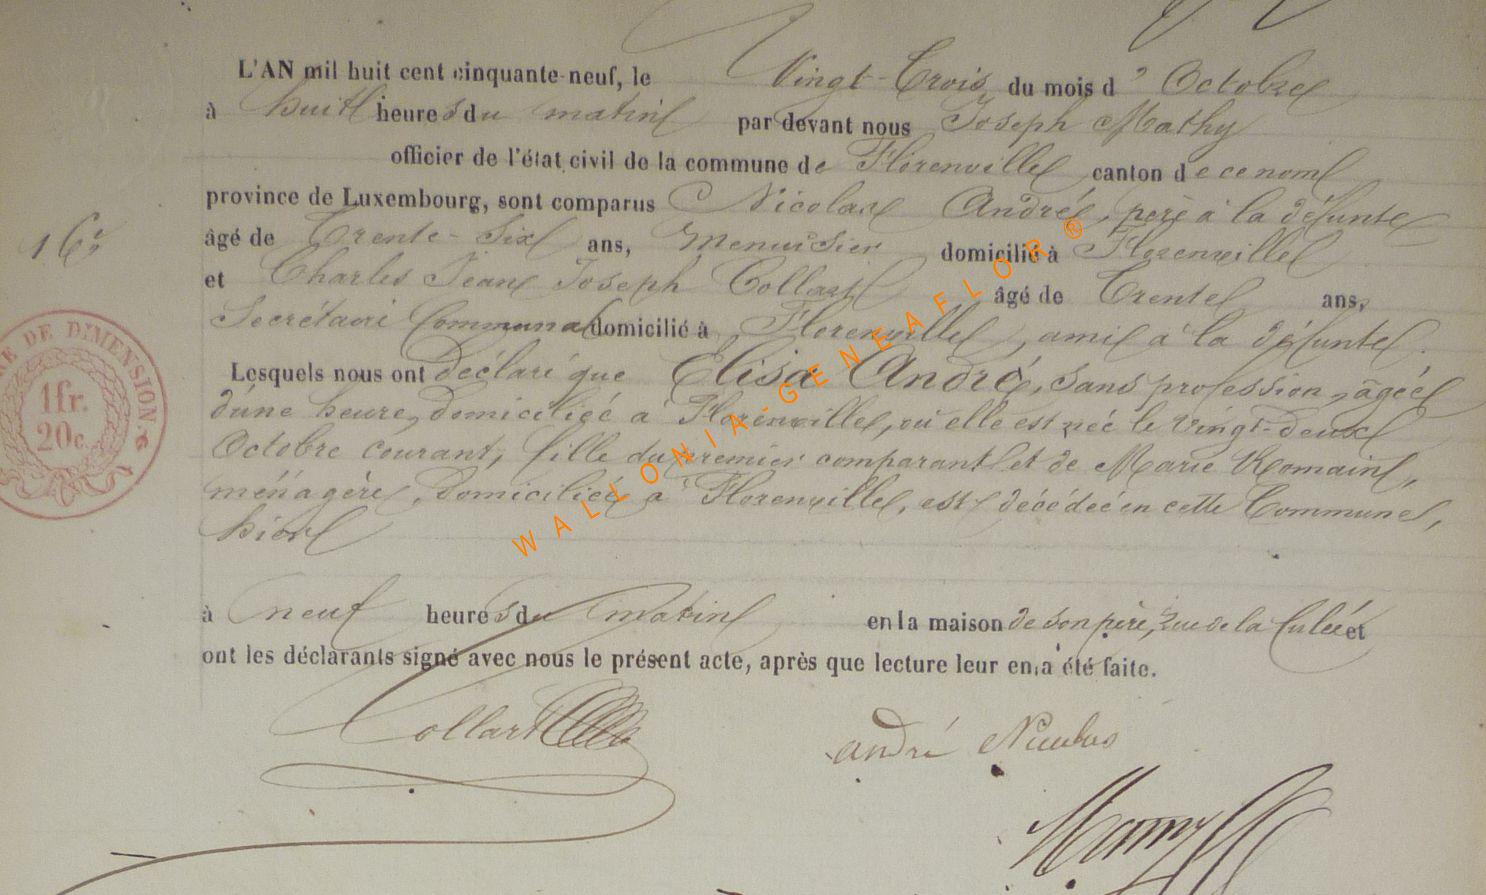 L'AN mil huit cent cinquante-neuf, le Vingt-Trois du mois d'Octobre
à huit heures du matin par devant nous Joseph Mathy
officier de l'état civil de la commune de Florenville canton de ce nom
province de Luxembourg, sont comparus Nicolas André, père à la défunte
16e
âgé de Trente-Six ans, Menuisier domicilié à Florenville
et Charles Jean Joseph Collart âgé de Trente ans,
Secrétaire Communal domicilié à Florenville, ami à la défunte.
Lesquels nous ont déclaré que Elisa André, sans profession, âgée
d'une heure, domiciliée à Florenville, où elle est née le vingt-deux
Octobre courant, fille du premier comparant et de Marie Romain,
ménagère, domiciliée à Florenville, est décédée en cette Commune,
hier
à neuf heures du matin en la maison de son père, rue de la Culée et
ont les déclarants signé avec nous le présent acte, après que lecture leur en a été faite.
Collart
andré Nicolas
DE DIMENSION
1fr.
20c.
WALLONIA-GENEAFLOR®